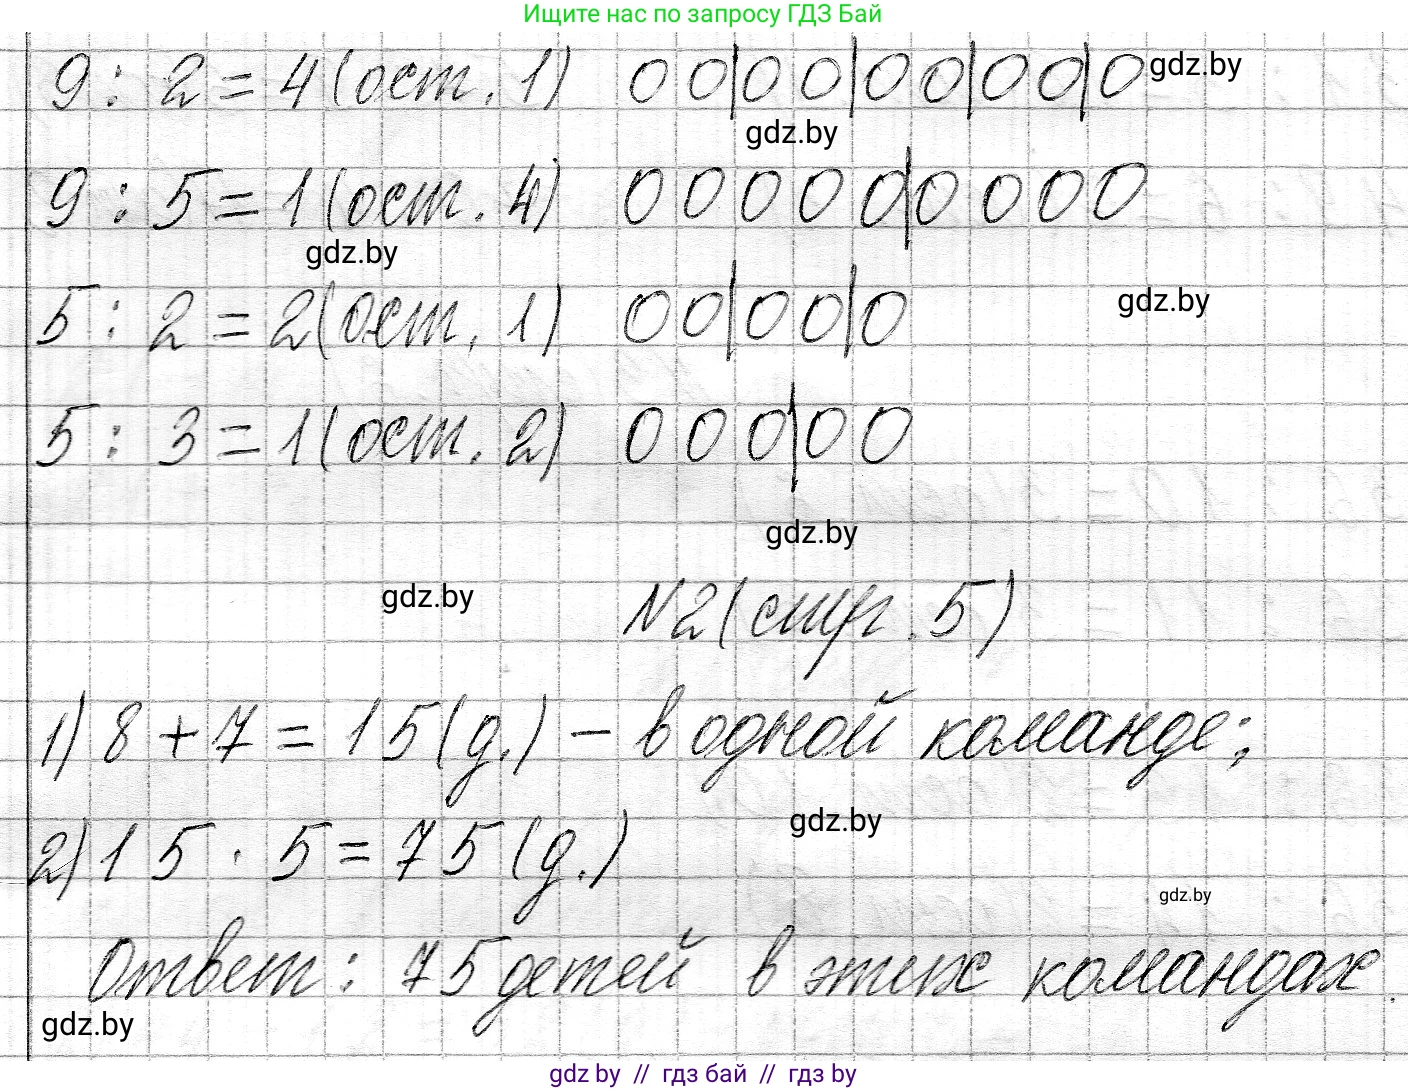 Ищите нас по запросу ГДЗ Бай
9 : 2 = 4 (ост. 1) 0 0|0 0|0 0|0 0|0 gdz.by
gdz.by
9 : 5 = 1 (ост. 4) 0 0 0 0 0|0 0 0 0
gdz.by
5 : 2 = 2 (ост. 1) 0 0|0 0|0 gdz.by
5 : 3 = 1 (ост. 2) 0 0 0|0 0
gdz.by
gdz.by
N2 (стр. 5)
1) 8 + 7 = 15 (д.) – в одной команде;
gdz.by
2) 15 · 5 = 75 (д.)
gdz.by
Ответ: 75 детей в этих командах.
gdz.by
gdz by // гдз бай // гдз by